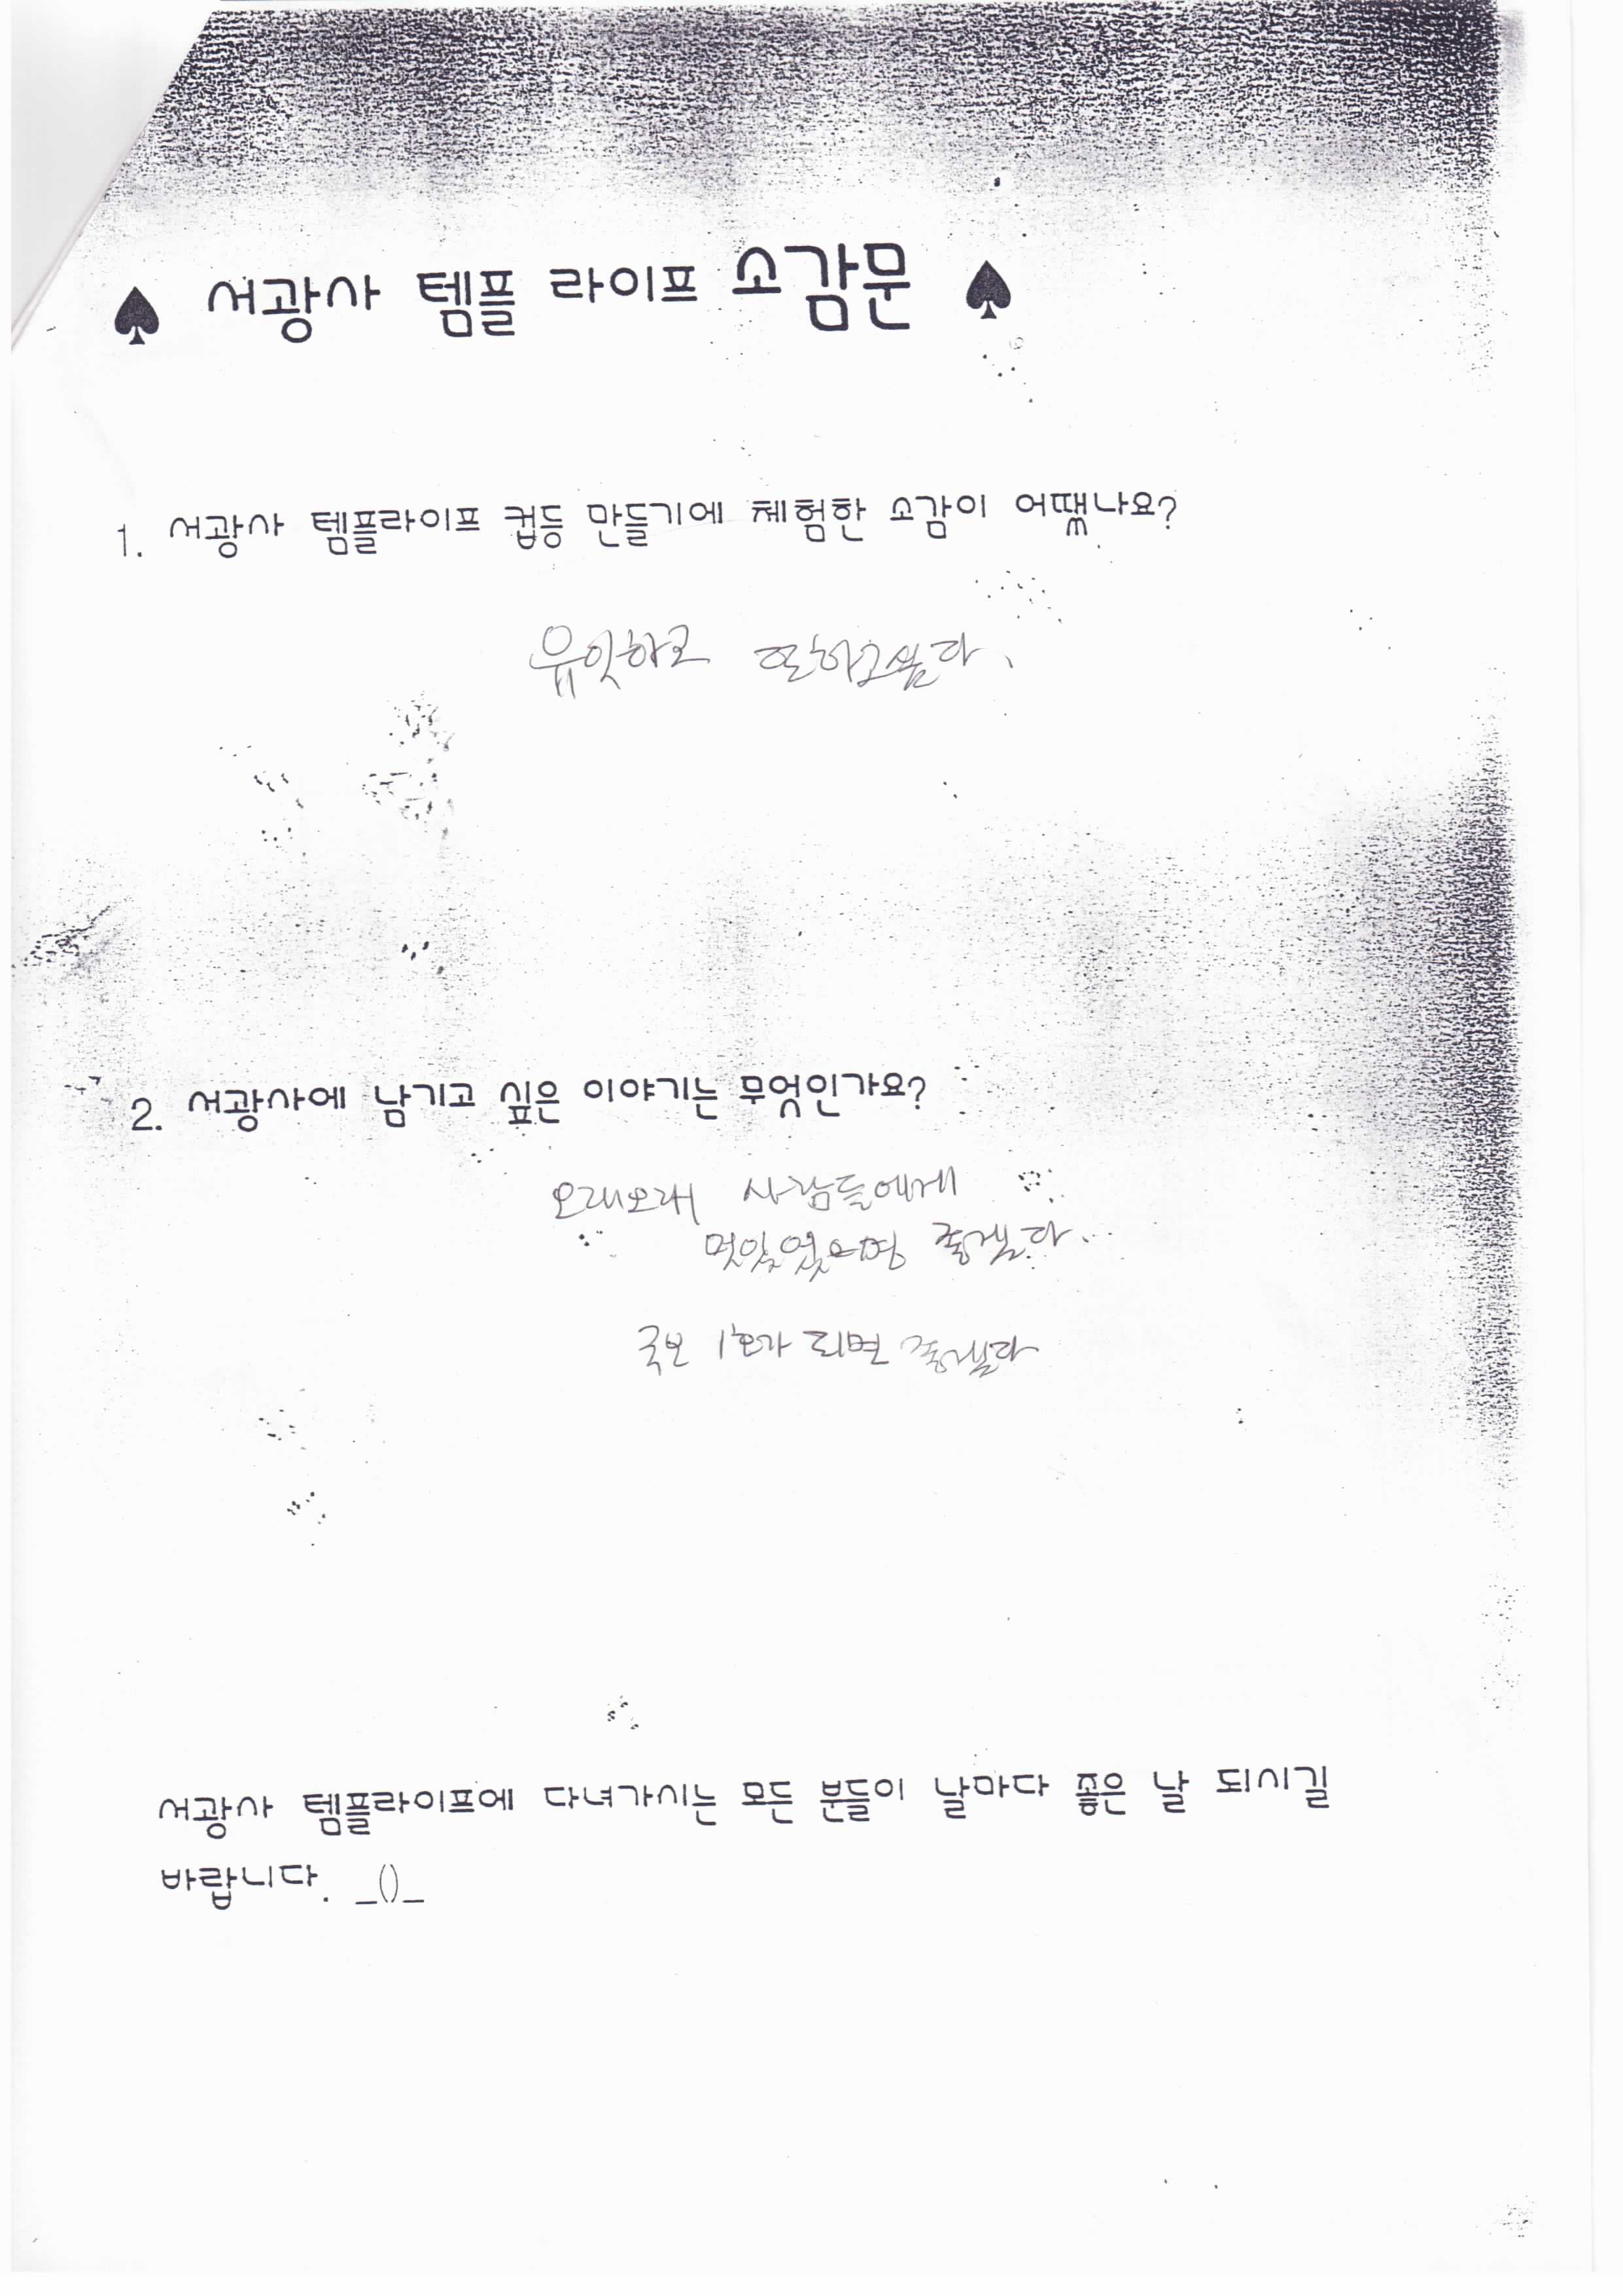 ♠ 서광사 템플 라이프 소감문 ♠
1. 서광사 템플라이프 컵등 만들기에 체험한 소감이 어땠나요?
유익하고 또하고싶다.
2. 서광사에 남기고 싶은 이야기는 무엇인가요?
오래오래 사람들에게
좋겠다.
국보 1호가 되면 좋겠다
서광사 템플라이프에 다녀가시는 모든 분들이 날마다 좋은 날 되시길
바랍니다. _()_